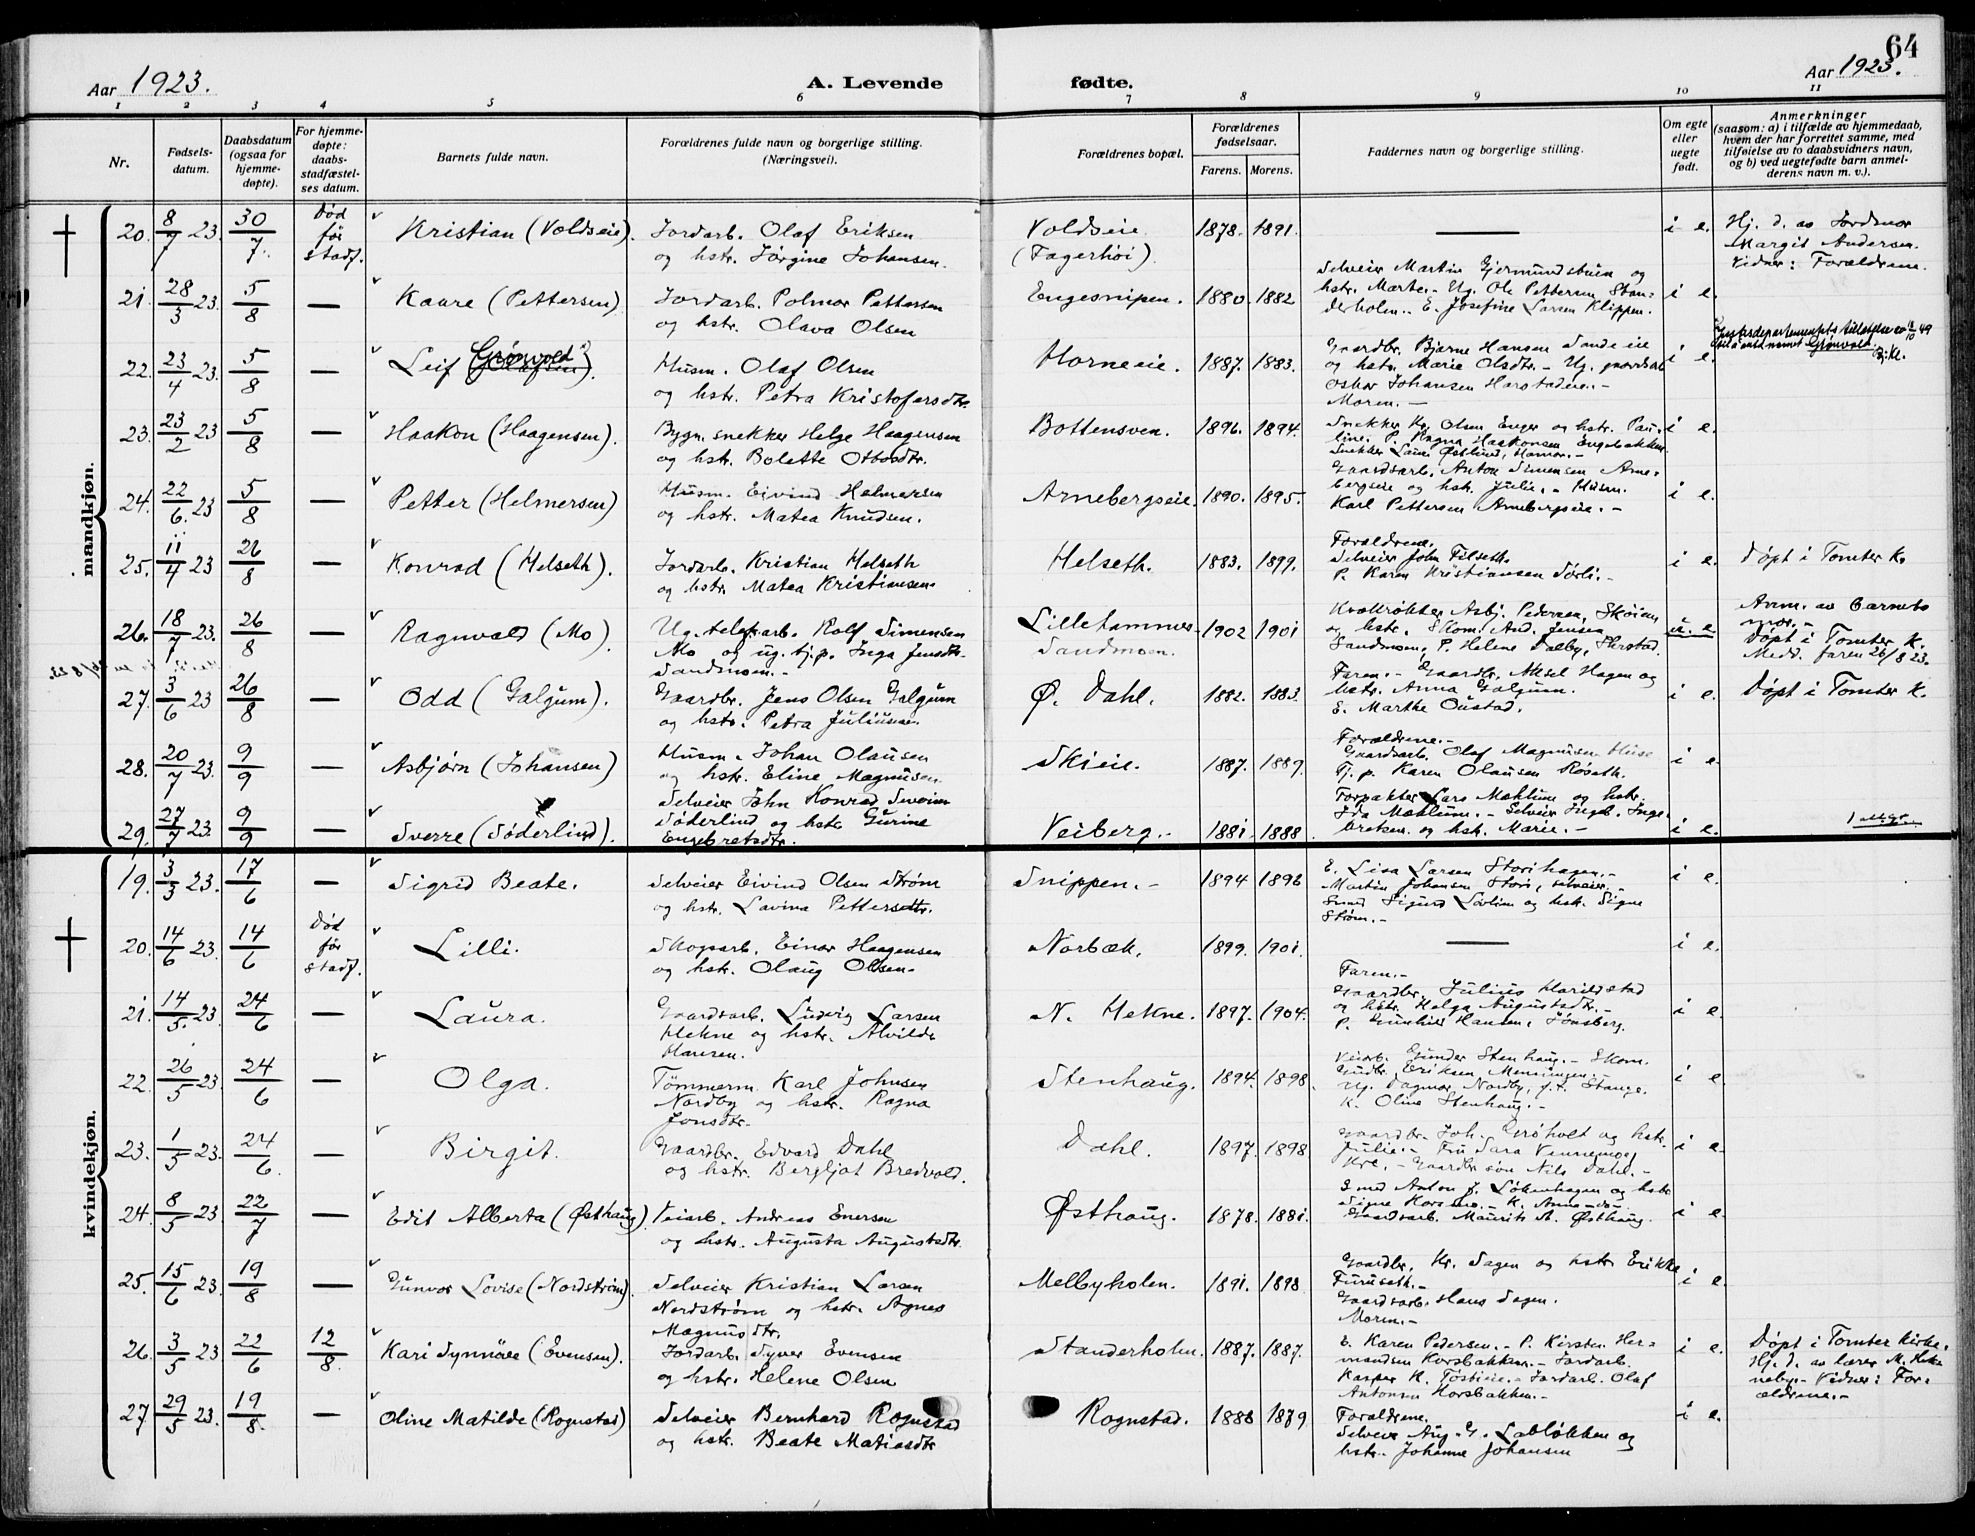 64
Aar 1923.
A. Levende fødte.
Aar 1923.
1 2 3 4 5 6 7 8 9 10 11
Nr.
Fødsels-
datum.
Daabsdatum
(ogsaa for
hjemme-
døpte).
For hjemme-
døpte:
daabs-
stadfæstel-
ses datum.
Barnets fulde navn.
Forældrenes fulde navn og borgerlige stilling.
(Næringsvei).
Forældrenes bopæl.
Forældrenes
fødselsaar.
Farens. Morens.
Faddernes navn og borgerlige stilling.
Om egte
eller
uegte
født.
Anmerkninger
(saasom: a) i tilfælde av hjemmedaab,
hvem der har forrettet samme, med
tilføielse av to daabsvidners navn,
og b) ved uegtefødte barn anmel-
derens navn m. v.).
mandkjøn.
20. 8/7 23. 30/7. Død
før
stadf.
Kristian (Voldseie).
Jordarb. Olaf Eriksen
og hstr. Jørgine Johansen.
Voldseie
(Fagerhøi).
1878. 1891. — i e.
Hj. d. av Jordmor
Margit Andersen.
Vidner: Forældrene.
21. 28/3 23. 5/8 —
Kaare (Pettersen)
Jordarb. Polmar Pettersen
og hstr. Olava Olsen
Engesnipen. 1880. 1882
Selveier Martin Gjermundstuen og
hstr. Marte. - Ug. Ole Pettersen Stan-
derholen. - E. Josefine Larsen Klippen.
i e.
22. 23/4 23. 5/8 —
Leif Grønvold (Olafsen).
Husm. Olaf Olsen
og hstr. Petra Kristofersdtr.
Horneeie. 1887. 1883.
Gaardbr. Bjarne Hansen Sandeeie
og hstr. Marie Olsdtr. - Ug. gaardsarb
Oskar Johansen
Moren. -
i e.
Justisdepartementets tillatelse av 49
til å anta navnet Grønvold.
23. 23/2 23 5/8 —
Haakon (Haagensen).
Bygn. snekker Helge Haagensen
og hstr. Bolette Ottosdtr.
Bottensven. 1896. 1894.
Snekker Kr. Olsen Enger og hstr. Pau-
line. P. Ragna Haakonsen Engebakken
Snekker Laurs Østlund, Hamar. -
i e.
24. 22/6. 23 5/8 —
Petter (Helmersen)
Husm. Eivind Helmersen
og hstr. Matea Knudsen.
Arnebergseie. 1890. 1895.
Gaardsarb. Anton Simensen Arne-
bergseie og hstr. Julie. - Husm.
Karl Pettersen Arnebergseie. -
i e.
25. 11/4 23 26/8 —
Konrad (Helseth).
Jordarb. Kristian Helseth
og hstr. Matea Kristiansen.
Helseth. 1883. 1899.
Forældrene.
Selveier John Filseth.
P. Karen Kristiansen Sørli. -
i e.
Døpt i Tomter K.
26. 18/7 23. 26/8 —
Ragnvald (Mo)
Ug. telefarb. Rolf Simensen
Mo og ug. tj.p. Inga Jensdtr.
Sandmoen. -
Lillehammer
Sandmoen.
1902 1901
Asbj. Pedersen, Skøien
og hstr. Skom. And. Jensen
Sandmoen, P. Helene Dalby,
u. e.
Anm. av barnets
mor. -
Døpt i Tomter K.
Medd. faren 26/8 23.
27. 3/6 23 26/8 —
Odd (Galgum).
Gaardbr. Jens Olsen Galgum
og hstr. Petra Juliussen
Ø. Dahl. 1882. 1883.
Faren. - Gaardbr. Aksel Hagen og
hstr. Anna Galgum.
E. Marthe Oustad.
i e.
Døpt i Tomter K.
28. 20/7 23. 9/9 —
Asbjørn (Johansen)
Husm. Johan Olausen
og hstr. Eline Magnusen.
Skieie. 1887. 1889.
Forældrene. -
Gaardsarb. Olaf Magnusen Huse
Tj. p. Karen Olausen Røseth.
i e.
29. 27/7 23. 9/9 —
Sverre (Søderlind).
Selveier John Konrad
Søderlind og hstr. Gurine
Engebretsdtr.
Veiberg. - 1881. 1888
Forpakter Lars Mæhlum og hstr.
Ida Mæhlum. - Selveier Ingeb. Inge-
bretsen og hstr. Marie. -
i e.
kvindekjøn.
19. 3/3 23. 17/6 —
Sigrid Beate.
Selveier Eivind Olsen Strøm
og hstr. Lavina Pettersdtr.
Snippen. - 1894 1896
E. Lisa Larsen Storihagen. -
Martin Johansen Stori, selveier. -
Smed Sigurd Løvlien og hstr. Signe
Strøm. -
i e.
20. 14/6 23. 14/6 Død
før
stadf.
Lilli.
Skogsarb. Einar Haagensen
og hstr. Olaug Olsen.
Norbæk. 1899. 1901. — i e.
21. 14/5. 23. 24/6 —
Laura.
Gaardsarb. Ludvig Larsen
Hekne og hstr. Alvilde
Hansen.
N. Hekne. 1897. 1904.
Faren. -
Gaardbr. Julius Harildstad
og hstr. Helga Augustsdtr. -
P. Gunhild Hansen, Jønsberg.
i e.
22. 26/5 23. 24/6 —
Olga.
Tømmerm. Karl Johnsen
Nordby og hstr. Ragna
Jonsdtr.
Stenhaug. 1894. 1898.
Veiarb. Gunder Stenhaug. - Skom.
Gudbr. Eriksen
Ug. Dagmar Nordby, f.t. Stange.
K. Oline Stenhaug. -
i e.
23. 1/5 23. 24/6. —
Birgit.
Gaardbr. Edvard Dahl
og hstr. Bergljot Bredvold.
Dahl. 1897. 1898
Gaardbr. Joh. Grøholt og hstr.
Julie. - Fru Sara Vennemoe
Kre. - Gaardbr søn Nils Dahl. -
i e.
24. 8/5 23. 22/7 —
Edit Alberta (Østhaug).
Veiarb. Andreas Enersen
og hstr. Augusta Augustsdtr.
Østhaug. 1878. 1881.
Smed Anton J. Løkenhagen og hstr
Signe - K. Anna
Gaardsarb. Maurits A. Østhaug.
i e.
25. 15/6 23. 19/8 —
Gunvor Lovise (Nordstrøm).
Selveier Kristian Larsen
Nordstrøm og hstr. Agnes
Magnusdtr.
Melbyholen. 1891. 1898
Gaardbr. Kr. Sagen og hstr Erikke
Furuseth. -
Gaardsarb. Hans Sagen.
Moren. -
i e.
26. 3/5 23 22/6 12/8.
Kari Synnøve (Evensen).
Jordarb. Syver Evensen
og hstr. Helene Olsen
Standerholen. 1887. 1887.
E. Karen Pedersen. - P. Kirsten Her-
mandsen Korsbakken. - Jordarb.
Kasper H. Tøstieie. - Jordarb. Olaf
Antonsen Korsbakken. -
i e.
Døpt i Tomter kirke.
Hj. d. av lærer M. Hek-
neby. - Vidner: For-
ældrene. -
27. 29/5 23. 19/8. —
Oline Matilde (Rognstad)
Selveier Bernhard Rognstad
og hstr. Beate Matiasdtr
Rognstad. 1888 1879
Forældrene.
Selveier Aug. G. Labløkken og
hstr. Johanne Johansen
i e.